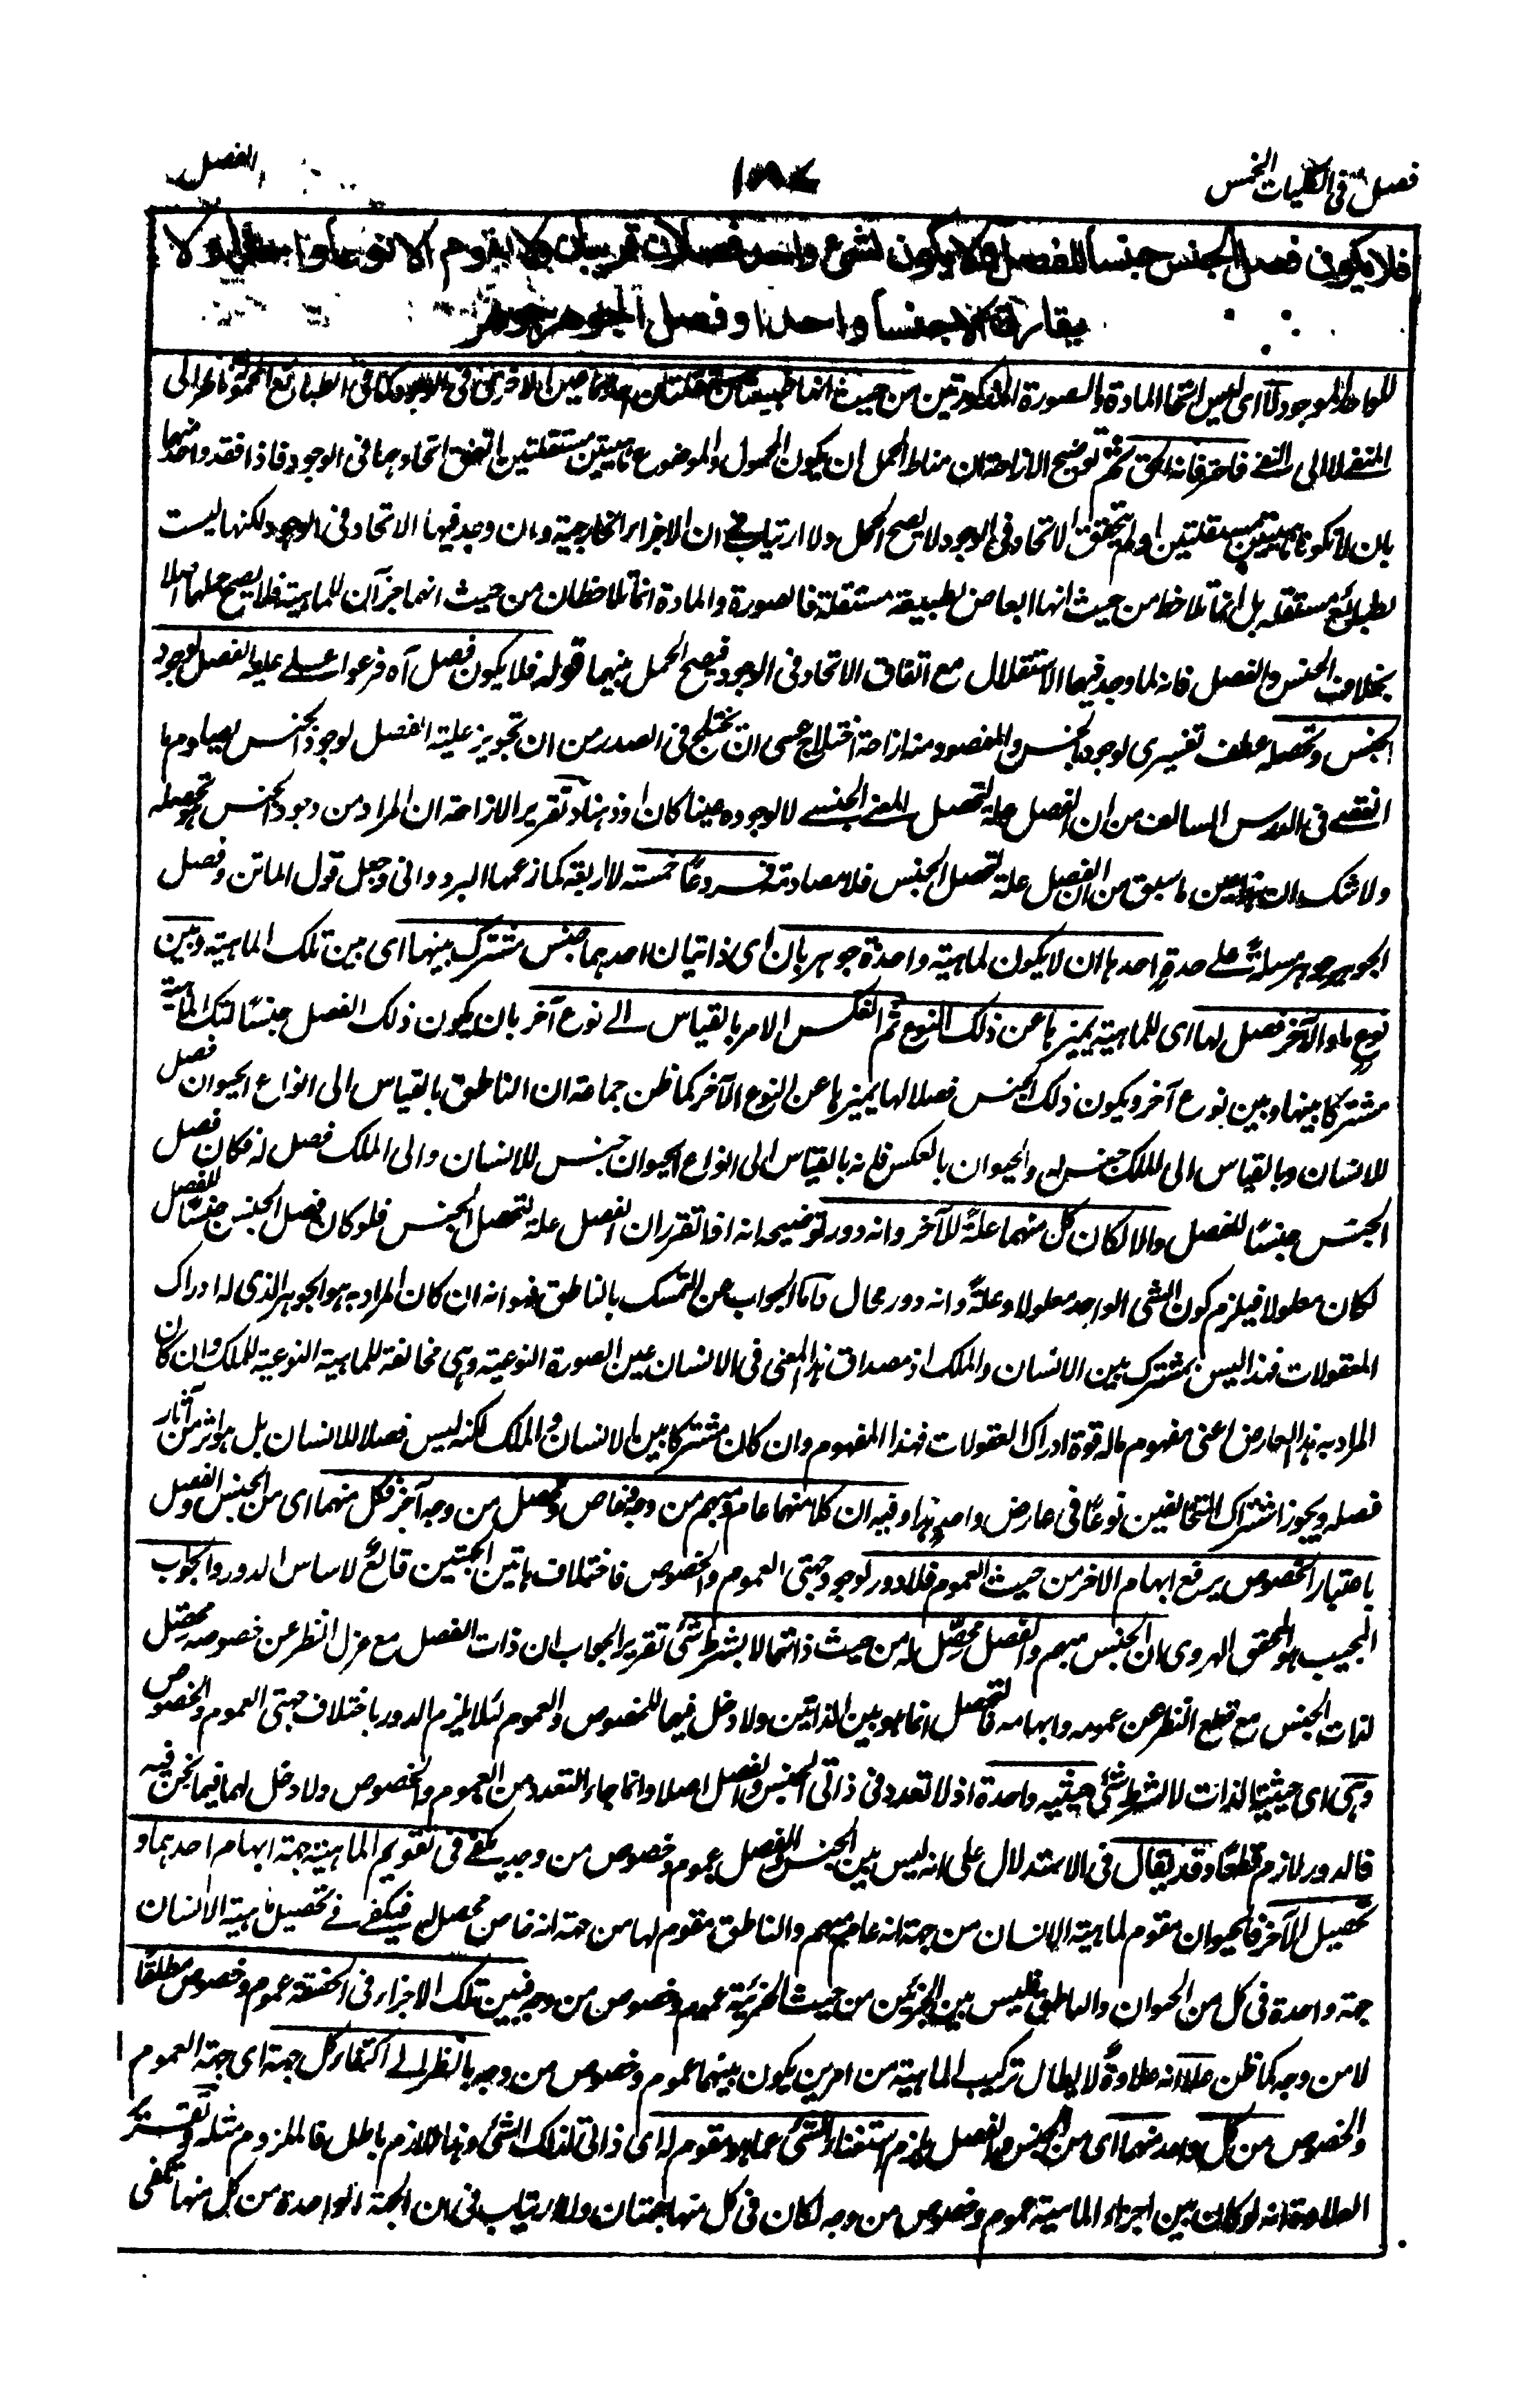 فصل فى الكليات الخمس
الفصل
فلا يكون فصل الجنس جنسا للفصل ولا يكون لشىء واحد فصلان قريبان ولا يقوم الا نوعا واحدا ولا
يقارن الا جنسا واحدا وفصل الجوهر جوهر
الموجود لا اى ليس اتحاد المادة والصورة المذكورتين من حيث انهما طبيعتان مستقلتان فى الوجود كما فى الطبائع المحمولة ناظر الى
المنفى لا الى النفى فاحفظ فانه الحق ثم توضيح الازاحة ان مناط الحمل ان يكون المحمول والموضوع ماهيتين مستقلتين اتفق اتحادهما فى الوجود فاذا فقد واحد منهما
بان لا تكونا ماهيتين مستقلتين او لم يتحقق الاتحاد فى الوجود لا يصح الحمل ولا ارتياب فى ان الاجزاء الخارجية وان وجد فيها الاتحاد فى الوجود لكنها ليست
بطبائع مستقلة بل انما تلاحظ من حيث انها ابعاض لطبيعة مستقلة فالصورة والمادة انما تلاحظان من حيث انهما جزآن للماهية فلا يصح حملهما اصلا
بخلاف الجنس والفصل فانه لما وجد فيهما الاستقلال مع اتفاق الاتحاد فى الوجود فيصح الحمل بينهما قوله فلا يكون فصل آه فرعوا على علية الفصل لوجود
الجنس وتحصله عطف تفسيرى لوجود الجنس والمقصود منه ازاحة اختلاج عسى ان يختلج فى الصدر من ان تجويز علية الفصل لوجود الجنس يصادم ما
انقضى فى الدرس السالف من ان الفصل علة لتحصل المعنى الجنسى لا لوجوده عينا كان او ذهنا وتقرير الازاحة ان المراد من وجود الجنس هو تحصله
ولا شك ان هذا عين ما سبق من ان الفصل علة لتحصل الجنس فلا مصادمة فروعا خمسة لا اربعة كما زعمها البردوانى وجعل قول الماتن وفصل
الجوهر جوهر مسئلة على حدة احدها ان لا يكون لماهية واحدة جوهريان اى ذاتيان احدهما جنس مشترك بينها اى بين تلك الماهية وبين
نوع ما والآخر فصل لها اى للماهية يميزها عن ذلك النوع ثم انعكس الامر بالقياس الى نوع آخر بان يكون ذلك الفصل جنسا لتلك الماهية
مشتركا بينها وبين نوع آخر ويكون ذلك الجنس فصلا لها يميزها عن النوع الآخر كما ظن جماعة ان الناطق بالقياس الى انواع الحيوان فصل
للانسان وبالقياس الى الملك جنس له والحيوان بالعكس فانه بالقياس الى انواع الحيوان جنس للانسان والى الملك فصل له فكان فصل
الجنس جنسا للفصل والا لكان كل منهما علة للآخر وانه دور توضيحه انه اذا تقرر ان الفصل علة لتحصل الجنس فلو كان فصل الجنس جنسا للفصل
لكان معلولا فيلزم كون الشئ الواحد معلولا وعلة وانه دور محال واما الجواب عن التمسك بالناطق فهو انه ان كان المراد به هو الجوهر الذى له ادراك
المعقولات فهذا ليس بمشترك بين الانسان والملك اذ مصداق هذا المعنى فى الانسان عين الصورة النوعية وهى مخالفة للماهية النوعية للملك وان كان
المراد به هذا العارض اعنى مفهوم ما له قوة ادراك المعقولات فهذا المفهوم وان كان مشتركا بين الانسان والملك لكنه ليس فصلا للانسان بل هو اثر من آثار
فصله ويجوز اشتراك المتخالفين نوعا فى عارض واحد هذا وفيه ان كلا منهما عام ومبهم من وجه وخاص ومحصل من وجه آخر فكل منهما اى من الجنس والفصل
باعتبار الخصوص يرفع ابهام الاخر من حيث العموم فلا دور لوجود جهتى العموم والخصوص فاختلاف هاتين الجهتين قالع لاساس الدور والجواب
المجيب هو المحقق الهروى ان الجنس مبهم والفصل محصل له من حيث ذاتهما لا بشرط شئ تقرير الجواب ان ذات الفصل مع عزل النظر عن خصوصه محصل
لذات الجنس مع قطع النظر عن عمومه وابهامه فالتحصل انما هو بين الذاتين ولا دخل فيها للخصوص والعموم لئلا يلزم الدور باختلاف جهتى العموم والخصوص
وهى اى حيثية الذات لا بشرط شئ حيثية واحدة اذ لا تعدد فى ذاتى الجنس والفصل اصلا وانما جاء التعدد من العموم والخصوص ولا دخل لهما فيما نحن فيه
فالدور لازم قطعا وقد يقال فى الاستدلال على انه ليس بين الجنس والفصل عموم وخصوص من وجه يكفى فى تقويم الماهية جهة ابهام احدهما و
تحصيل الآخر فالحيوان مقوم لماهية الانسان من جهة انه عام مبهم والناطق مقوم لها من جهة انه خاص محصل له فيكفى فى تحصيل ماهية الانسان
جهة واحدة فى كل من الحيوان والناطق فليس بين الجزئين من حيث الجزئية عموم وخصوص من وجه فبين تلك الاجزاء فى الحقيقة عموم وخصوص مطلقا
لا من وجه كما ظن علا انه علاوة لابطال تركيب الماهية من امرين يكون بينهما عموم وخصوص من وجه بالنظر الى اكتفاء كل جهة اى جهة العموم
والخصوص من كل واحد منهما اى من الجنس والفصل يلزم استغناء الشئ عما هو مقوم له اى ذاتى لذلك الشئ وهذا اللازم باطل فالملزوم مثله وتقرير
العلاوة انه لو كان بين اجزاء الماهية عموم وخصوص من وجه لكان فى كل منها جهتان ولا ارتياب فى ان الجهة الواحدة من كل منها تكفى